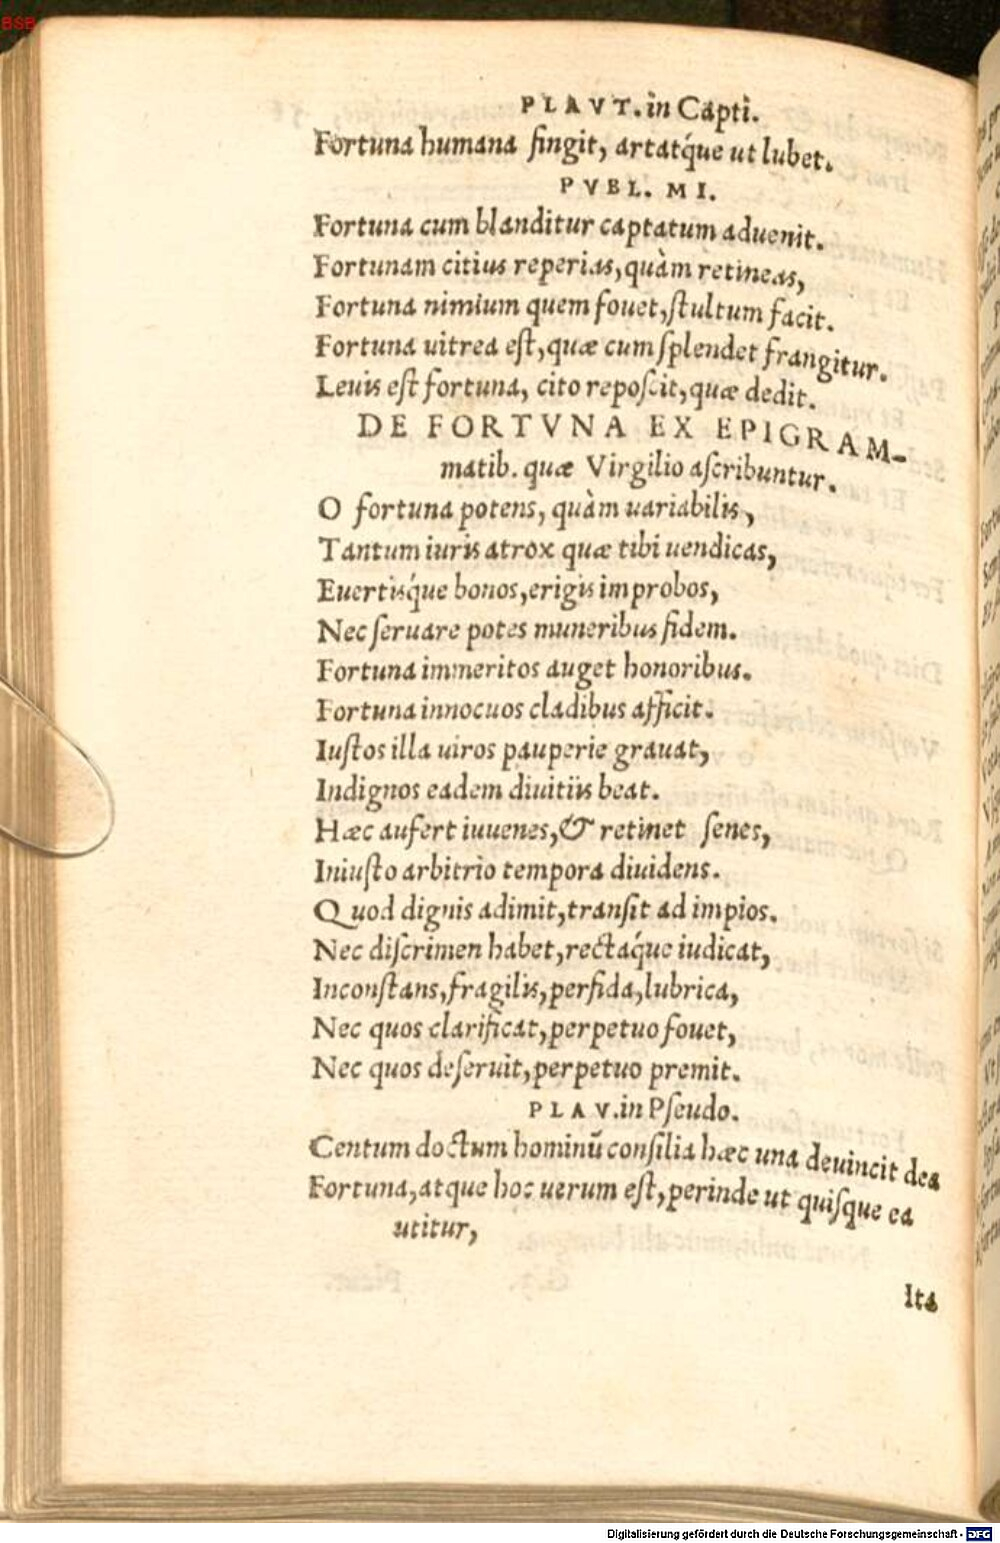 BSB
PLAVT. in Capti.
Fortuna humana fingit, artatq́ue ut lubet.
PVBL. MI.
Fortuna cum blanditur captatum aduenit.
Fortunam citius reperias, quàm retineas,
Fortuna nimium quem fouet, ſtultum facit.
Fortuna uitrea eſt, quæ cum ſplendet frangitur.
Leuis eſt fortuna, cito repoſcit, quæ dedit.
DE FORTVNA EX EPIGRAM-
matib. quæ Virgilio aſcribuntur.
O fortuna potens, quàm uariabilis,
Tantum iuris atrox quæ tibi uendicas,
Euertisq́ue bonos, erigis improbos,
Nec ſeruare potes muneribus fidem.
Fortuna immeritos auget honoribus.
Fortuna innocuos cladibus afficit.
Iuſtos illa uiros pauperie grauat,
Indignos eadem diuitiis beat.
Hæc aufert iuuenes, & retinet ſenes,
Iniuſto arbitrio tempora diuidens.
Quod dignis adimit, tranſit ad impios.
Nec diſcrimen habet, rectaq́ue iudicat,
Inconſtans, fragilis, perfida, lubrica,
Nec quos clarificat, perpetuo fouet,
Nec quos deſeruit, perpetuo premit.
PLAV. in Pſeudo.
Centum doctum hominū conſilia hæc una deuincit dea
Fortuna, atque hoc uerum eſt, perinde ut quiſque ea
utitur,
Ita
Digitalisierung gefördert durch die Deutsche Forschungsgemeinschaft - DFG